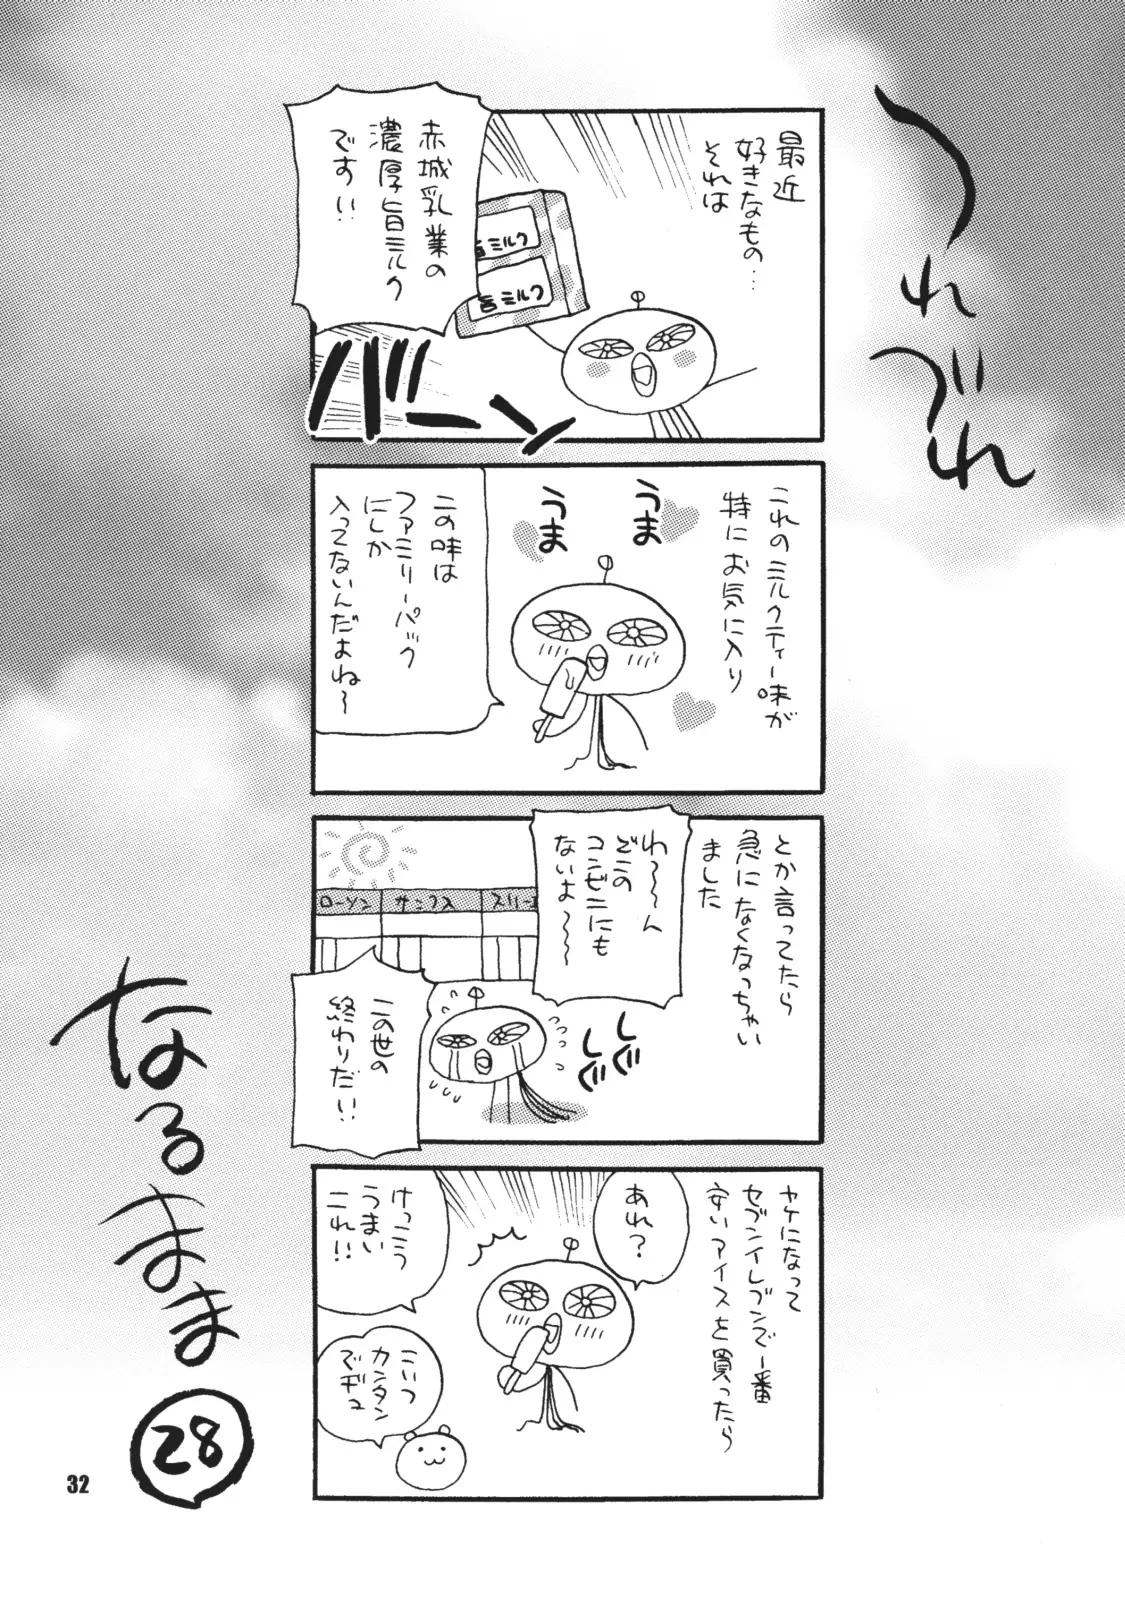 つれづれ
最近
好きなもの…
それは
赤城乳業の
濃厚旨ミルク
です!!
旨ミルク
旨ミルク
バーン
これのミルクティー味が
特にお気に入り
うま
うま
この味は
ファミリーパック
にしか
入ってないんだよね〜
とか言ってたら
急になくなっちゃい
ました
わ〜〜〜ん
どこの
コンビニにも
ないよ〜〜〜
ローソン
サンクス
スリーエ
しぐしぐ
この世の
終わりだ!!
ヤケになって
セブンイレブンで一番
安いアイスを買ったら
あれ?
けっこう
うまい
これ!!
こいつ
カンタン
でヂュ
なるまま
28
32